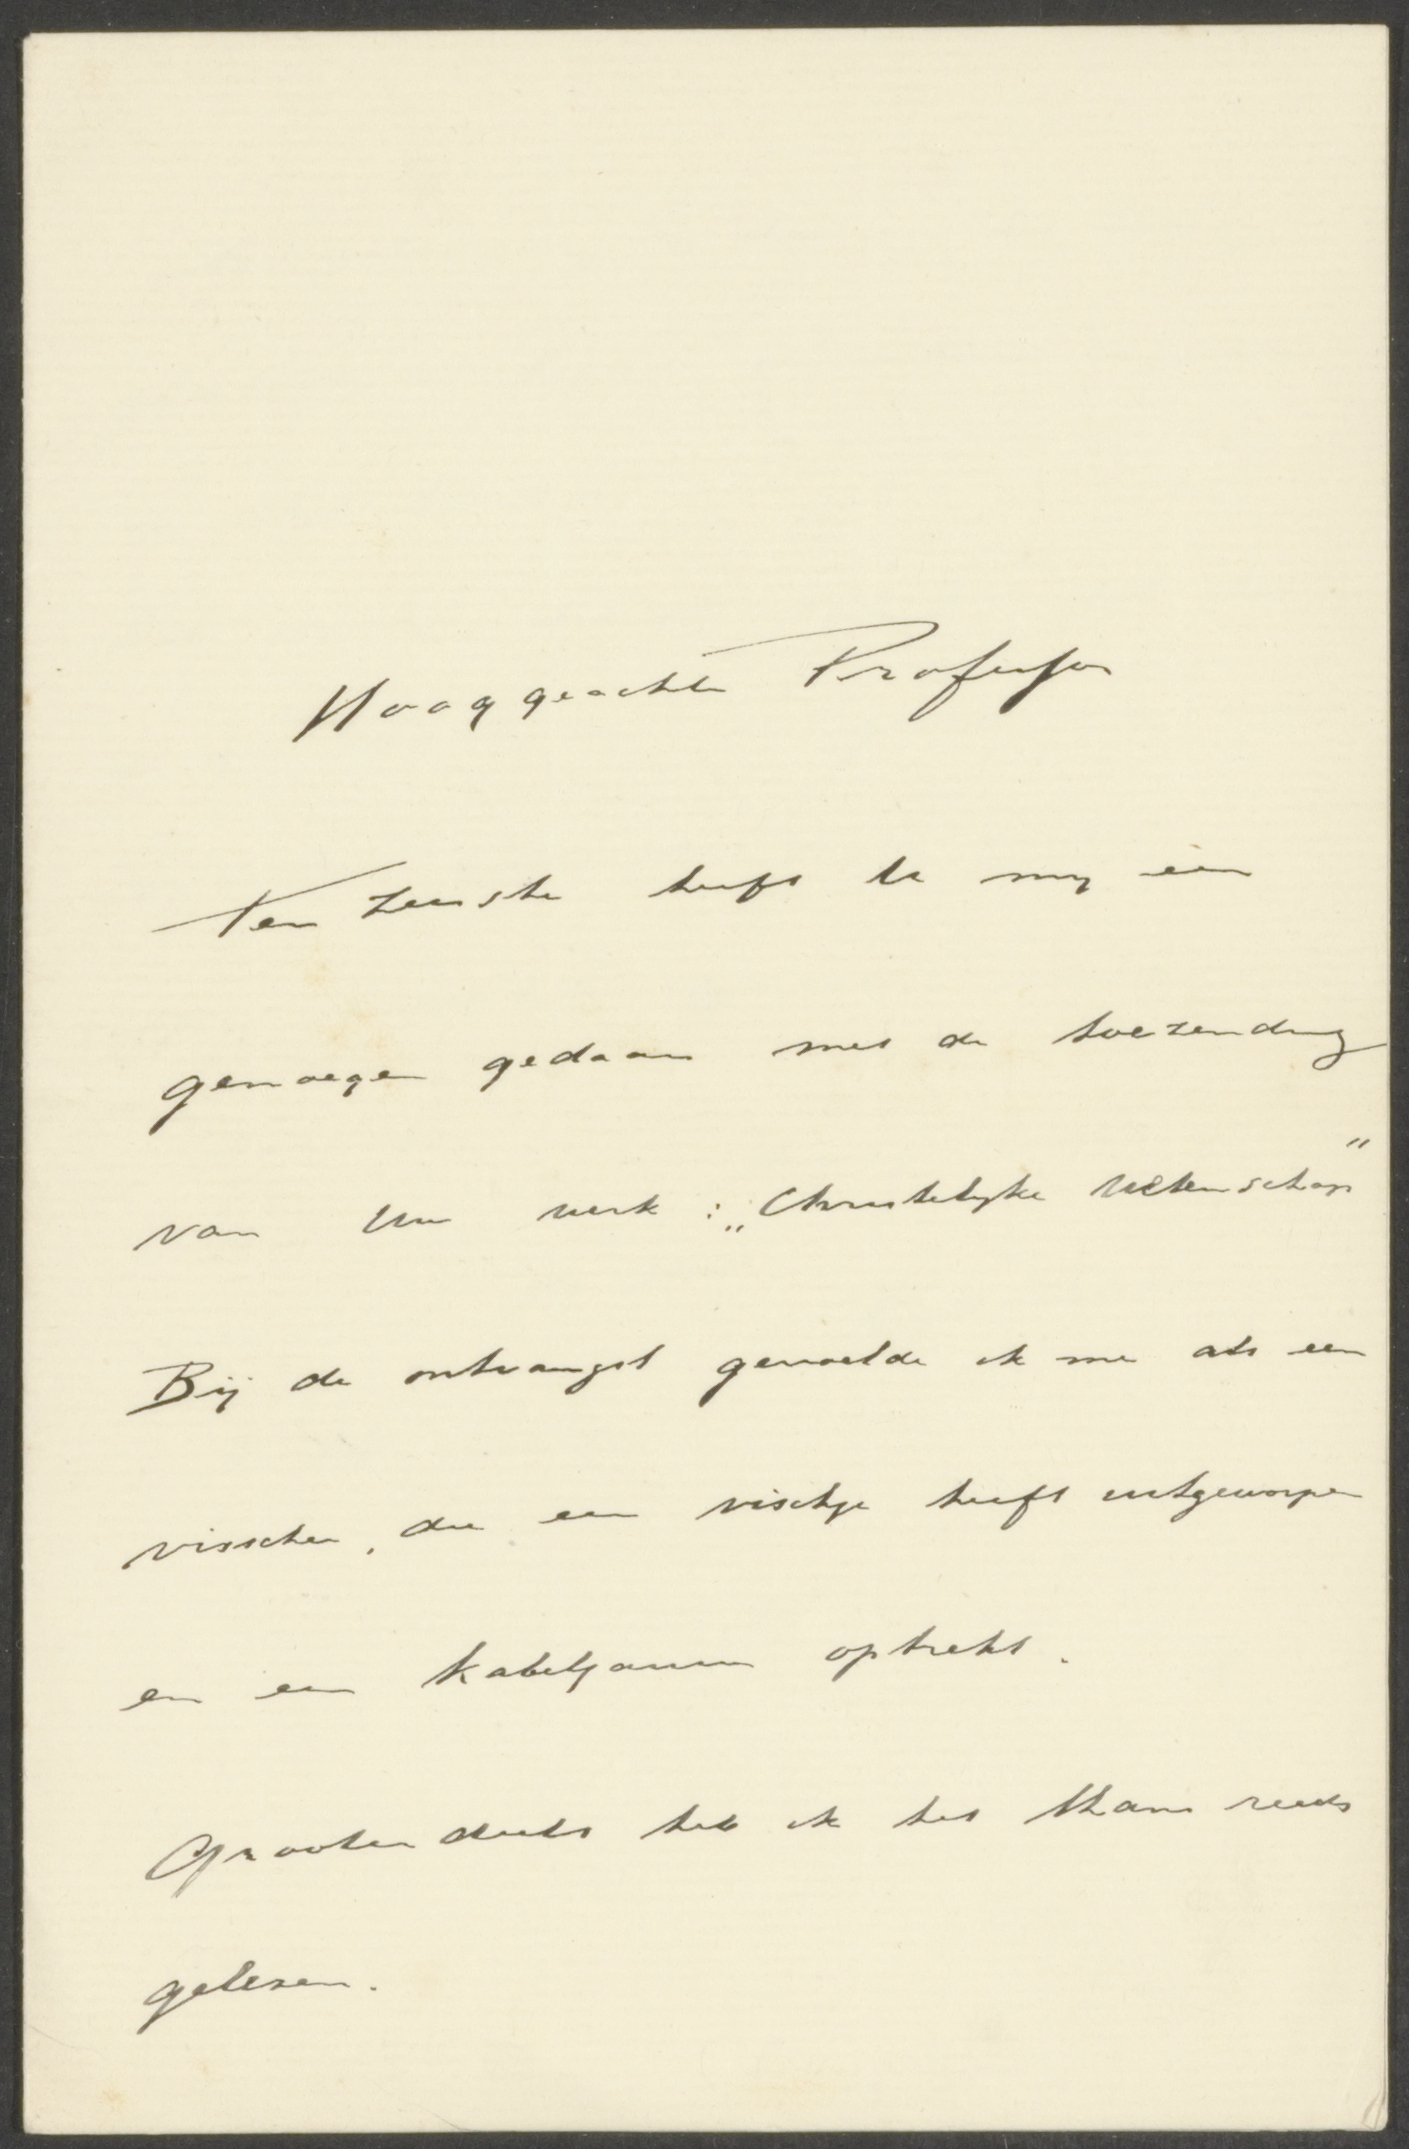 Hooggeachte Professor
Ten zeerste heeft U mij een
genoegen gedaan met de toezending
van Uw werk : „Christelijke Wetenschap"
Bij de ontvangst gevoelde ik me als een
visscher, die een vischje heeft uitgeworpen
en een kabeljauw optrekt.
Grootendeels heb ik het thans reeds
gelezen.